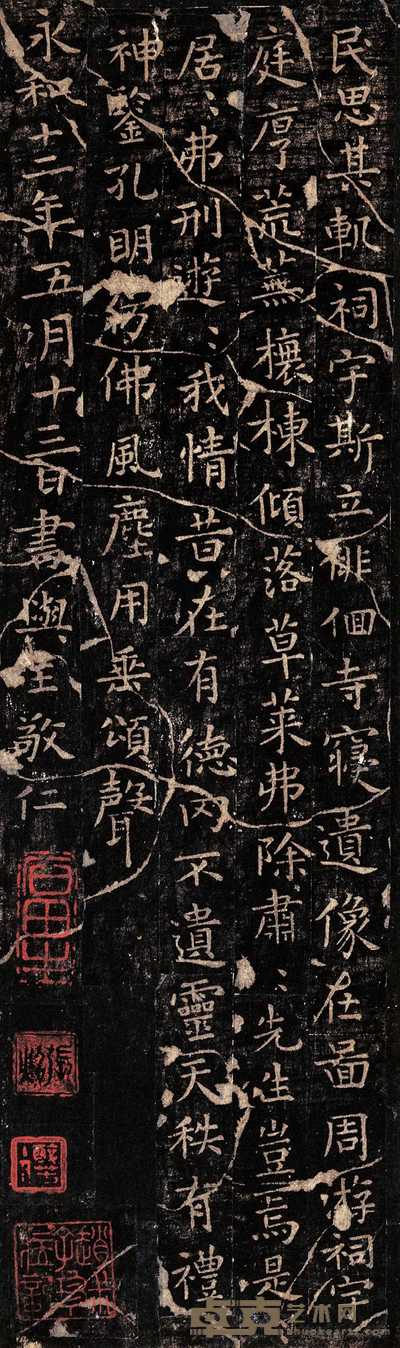 民思其軌祠宇斯立徘徊寺寢遺像在啚周游祠宇
庭序荒蕪榱棟傾落草萊弗除肅〻先生豈焉是
居〻弗刑遊〻我情昔在有德罔不遺靈天秩有禮
神鑒孔明仿佛風塵用垂頌聲
永和十二年五月十三日書與王敬仁
卓克艺术网